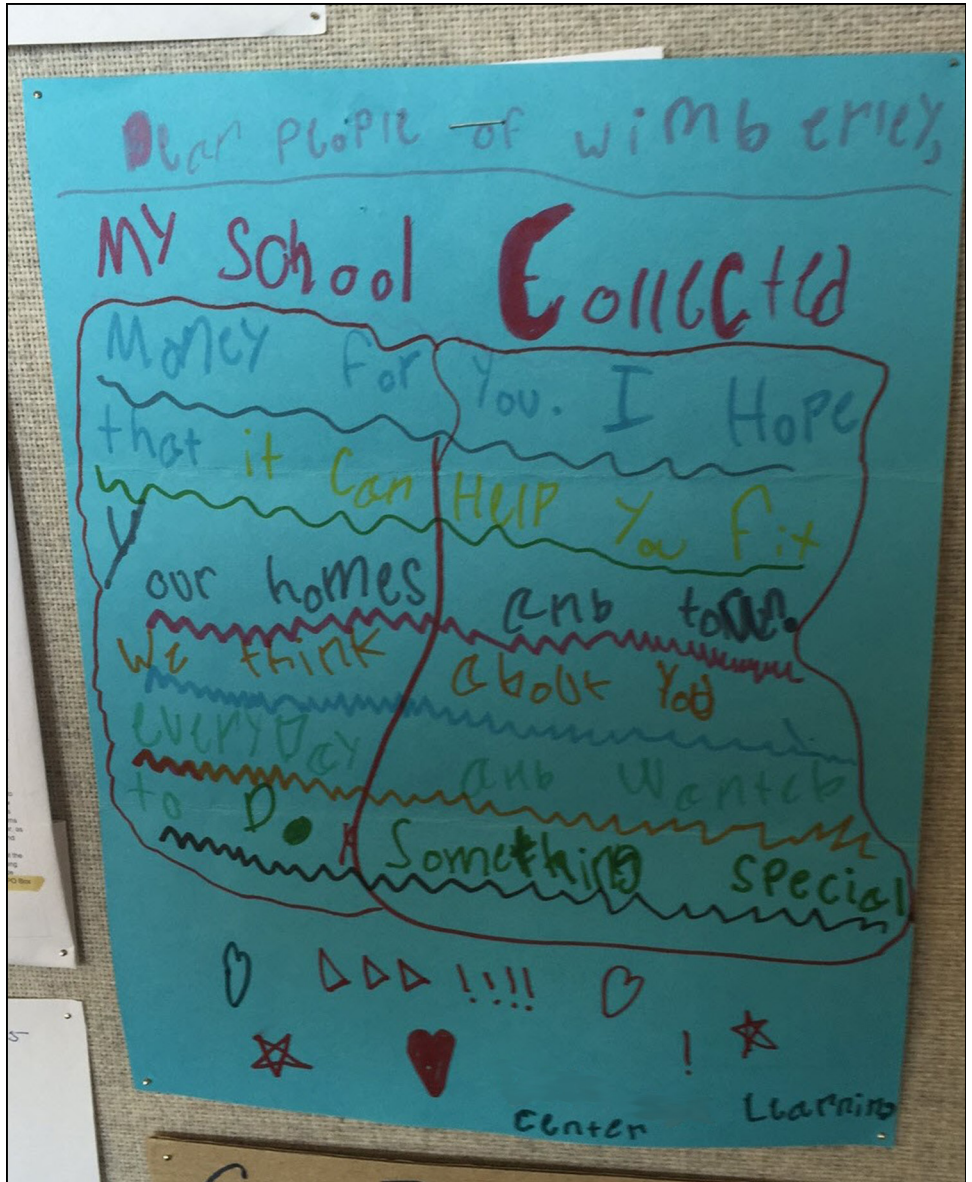 Dear People of Wimberley,
MY School Collected
Money For You. I Hope
that it Can Help You Fix
Your homes anb town.
We think about You
everyDay anb Wanteb
to Do Something special
!!!!
!
Center Learning